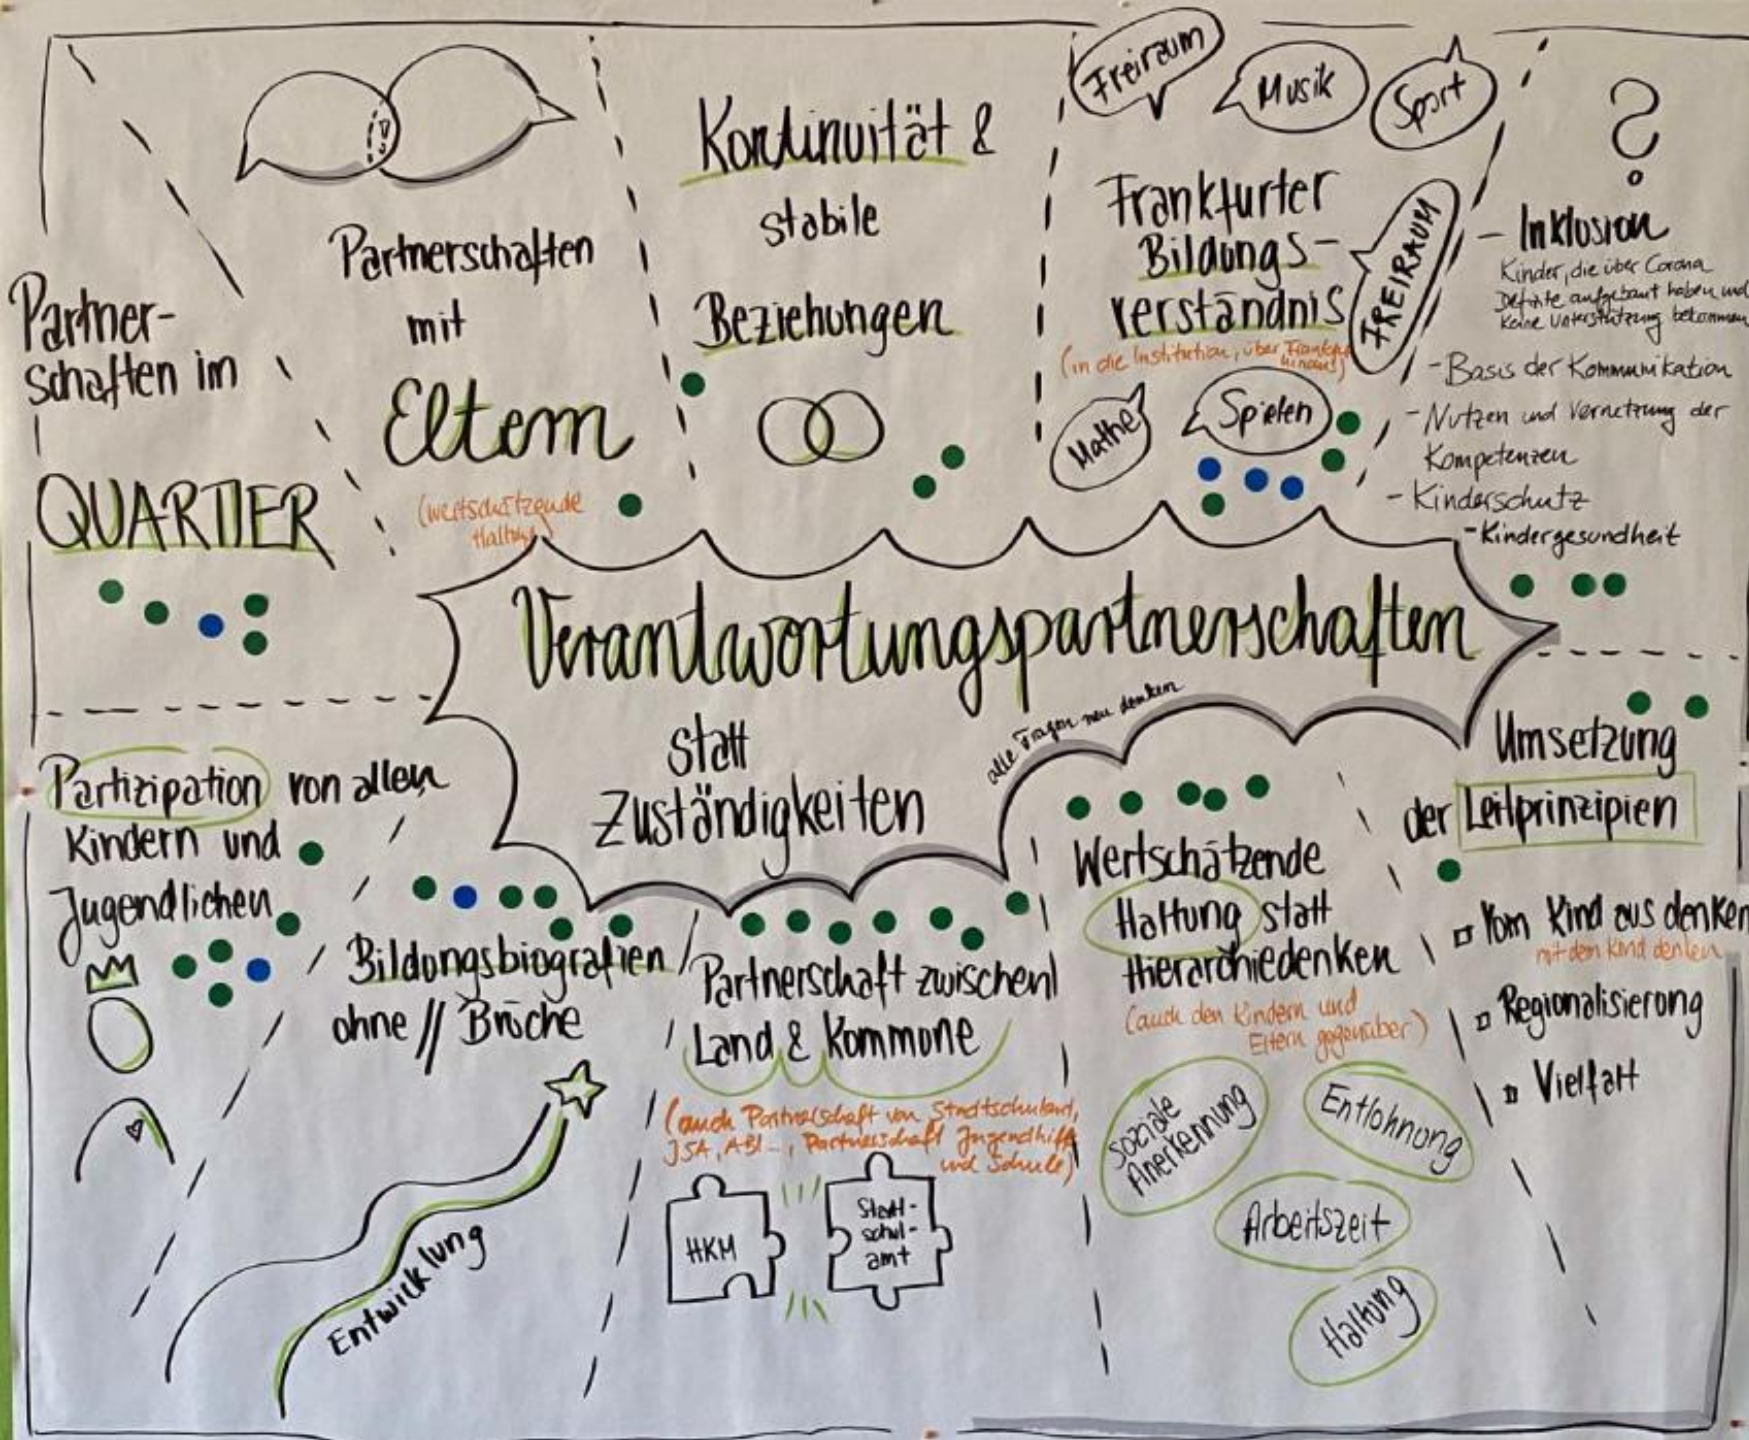 Partner-
schaften im
QUARTIER
Partnerschaften
mit
Eltern
(wertschätzende
Haltung)
Kontinuität &
stabile
Beziehungen
Freiraum
Musik
Sport
Frankfurter
Bildungs-
verständnis
(in die Institution, über Frankfurt
hinaus)
FREIRAUM
Mathe
Spielen
?
- Inklusion
Kinder, die über Corona
Defizite aufgebaut haben und
keine Unterstützung bekommen
- Basis der Kommunikation
- Nutzen und Vernetzung der
Kompetenzen
- Kinderschutz
- Kindergesundheit
Verantwortungspartnerschaften
statt
Zuständigkeiten
alle Fragen neu denken
Partizipation von allen
Kindern und
Jugendlichen
Bildungsbiografien
ohne // Brüche
Entwicklung
Partnerschaft zwischen
Land & Kommune
(auch Partnerschaft von Stadtschulamt,
JSA, ASJ..., Partnerschaft Jugendhilfe
und Schule)
HKM
Stadt-
schul-
amt
Wertschätzende
Haltung statt
Hierarchiedenken
(auch den Kindern und
Eltern gegenüber)
Soziale
Anerkennung
Entlohnung
Arbeitszeit
Haltung
Umsetzung
der Leitprinzipien
Vom Kind aus denken
mit dem Kind denken
Regionalisierung
Vielfalt